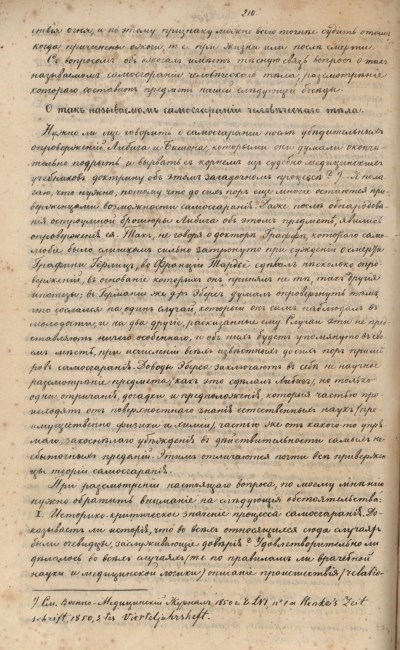 210
ствія огня, и по этому признаку можно всего точнѣе судить о томъ
когда причинены ожоги, т. е. при жизни или послѣ смерти.
Съ вопросомъ объ ожогахъ имѣетъ тѣсную связь вопросъ о такъ
называемомъ самосгараніи человѣческаго тѣла, разсмотрѣніе
котораго составитъ предметъ нашей слѣдующей бесѣды.
О такъ называемомъ самосгараніи человѣческаго тѣла.
Нужно ли еще говорить о самосгараніи послѣ убѣдительныхъ
опроверженій Либиха и Бишофа, которыми они думали оконча-
тельно подрыть и вырвать съ корнемъ изъ судебно-медицинскихъ
учебниковъ доктрину объ этомъ загадочномъ процессѣ? ¹) Я пола-
гаю, что нужно, потому что до сихъ поръ еще многіе остаются при-
верженцами возможности самосгаранія. Даже послѣ обнародова-
нія остроумной брошюры Либиха объ этомъ предметѣ, явились
опроверженія ея. Такъ, не говоря о докторѣ Граффѣ, котораго само-
любіе было слишкомъ сильно затронуто при сужденіи о смерти
Графини Герлицъ, во Франціи Тардье сдѣлалъ нѣсколько опро-
верженій, въ основаніе которыхъ онъ принялъ не тѣ, такъ другія
ипотезы; въ Германіи же д-ръ Эберсъ думалъ опровергнуть тѣмъ
что сослался на одинъ случай, который онъ самъ наблюдалъ въ
молодости, и на два другіе, разсказанные ему. Случаи эти не пред-
ставляютъ ничего особеннаго, и объ нихъ будетъ упомянуто въ сво-
емъ мѣстѣ, при исчисленіи всѣхъ извѣстныхъ до сихъ поръ примѣ-
ровъ самосгаранія. Доводы Эберса заключаютъ въ себѣ не научное
разсмотрѣніе предмета, какъ это сдѣлалъ Либихъ, но только
одни отрицанія, догадки и предположенія, которыя частью про-
исходятъ отъ поверхностнаго знанія естественныхъ наукъ (пре-
имущественно физики и химіи), частью же отъ какого-то упря-
маго, закоснѣлаго убѣжденія въ дѣйствительности самыхъ не-
сбыточныхъ преданій. Этимъ отличаются почти всѣ привержен-
цы теоріи самосгаранія.
При разсмотрѣніи настоящаго вопроса, по моему мнѣнію
нужно обратить вниманіе на слѣдующія обстоятельства:
I. Историко-критическое значеніе процесса самосгаранія. До-
казываетъ ли исторія, что во всѣхъ относящихся сюда случаяхъ
были очевидцы, заслуживающіе довѣрія? Удовлетворительно ли
дѣлалось во всѣхъ случаяхъ (т. е. по правиламъ ли врачебной
науки и медицинской логики) описаніе происшествія (relatio-
¹) См. Военно-Медицинскій Журналъ, 1850 г. Ч. LVI, № 1 и Henke's Zeit
schrift 1850, 3 tes Vierteljahrsheft.